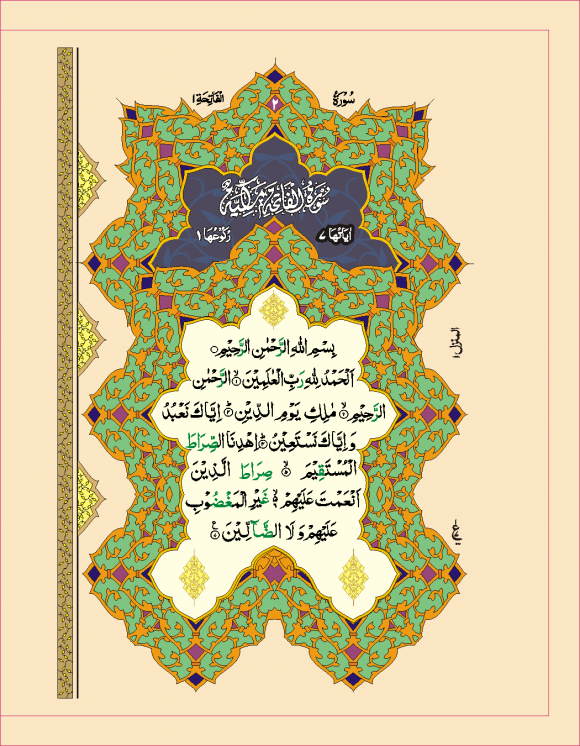 سُوْرَةُ الْفَاتِحَةِ ١
٢
سُوْرَةُ الْفَاتِحَةِ مَكِّيَّةٌ
اٰيَاتُهَا ٧ رُكُوْعُهَا ١
بِسْمِ اللّٰهِ الرَّحْمٰنِ الرَّحِيْمِ ۝
اَلْحَمْدُ لِلّٰهِ رَبِّ الْعٰلَمِيْنَ ۝١ الرَّحْمٰنِ
الرَّحِيْمِ ۝٢ مٰلِكِ يَوْمِ الدِّيْنِ ۝٣ اِيَّاكَ نَعْبُدُ
وَاِيَّاكَ نَسْتَعِيْنُ ۝٤ اِهْدِنَا الصِّرَاطَ
الْمُسْتَقِيْمَ ۝٥ صِرَاطَ الَّذِيْنَ
اَنْعَمْتَ عَلَيْهِمْ ۝٦ غَيْرِ الْمَغْضُوْبِ
عَلَيْهِمْ وَلَا الضَّآلِّيْنَ ۝٧
المنزل ١